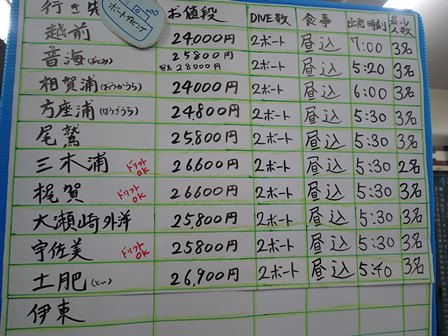 行き先 ボートダイビング お値段 DIVE数 食事 出発時刻 最少人数
越前 24000円 2ボート 昼込 7:00 3名
音海(おとみ) 25800円 28000円 2ボート 昼込 5:20 3名
相賀浦(おうかうら) 24000円 2ボート 昼込 6:00 3名
方座浦(ほうざうら) 24,800円 2ボート 昼込 5:30 3名
尾鷲 25,800円 2ボート 昼込 5:30 3名
三木浦 ドリフトOK 26,600円 2ボート 昼込 5:30 2名
梶賀 ドリフトOK 26600円 2ボート 昼込 5:30 3名
大瀬崎外洋 25,800円 2ボート 昼込 5:30 3名
宇佐美 ドリフトOK 25800円 2ボート 昼込 5:30 3名
土肥(とい) 26,900円 2ボート 昼込 5:40 3名
伊東